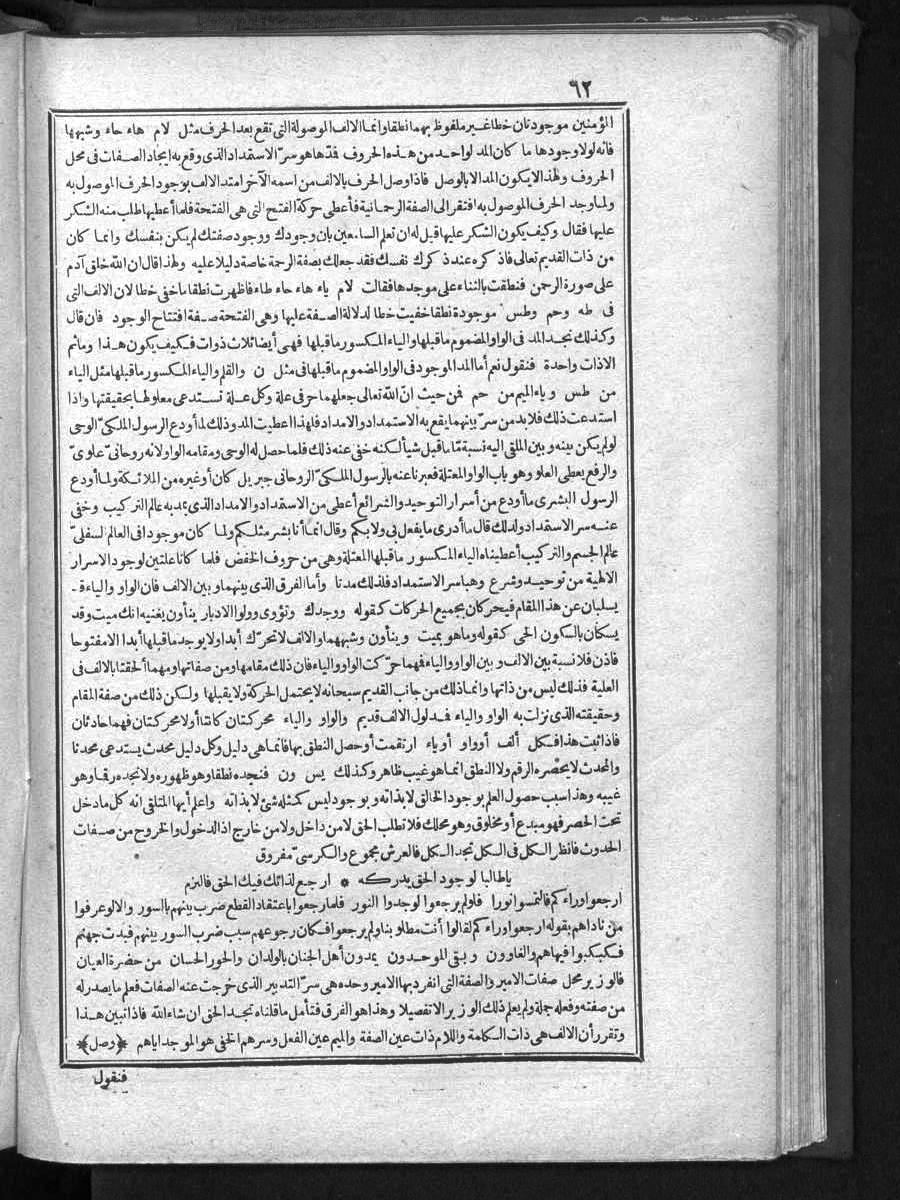 ٦٢
المؤمنين موجودتان خطا غير ملفوظ بهما نطقا وانما الالف الموصولة التى تقع بعد الحرف مثل لام هاء حاء وشبهها
فانه لولا وجودها ما كان المد لواحد من هذه الحروف فمدّها هو سرّ الاستمداد الذى وقع به ايجاد الصفات فى محل
الحروف ولهذا لا يكون المد الا بالوصل فاذا وصل الحرف بالالف من اسمه الآخر امتد الالف بوجود الحرف الموصول به
ولما وجد الحرف الموصول به افتقر الى الصفة الرحمانية فأعطى حركة الفتح التى هى الفتحة فلما أعطيها طلب منه الشكر
عليها فقال وكيف يكون الشكر عليها قيل له ان تعلم السامعين بان وجودك ووجود صفتك لم يكن بنفسك وانما كان
من ذات القديم تعالى فاذكره عند ذكرك نفسك فقد جعلك بصفة الرحمة خاصة دليلا عليه ولهذا قال ان الله خلق آدم
على صورة الرحمن فنطقت بالثناء على موجدها فقالت لام ياء هاء حاء طاء فاظهرت نطقا ما خفى خطا لان الالف التى
فى طه وحم وطس موجودة نطقا خفيت خطا لدلالة الصفة عليها وهى الفتحة صفة افتتاح الوجود فان قال
وكذلك نجد المد فى الواو المضموم ما قبلها والياء المكسور ما قبلها فهى أيضا ثلاث ذوات فكيف يكون هذا وما ثم
الا ذات واحدة فنقول نعم أما المد الموجود فى الواو المضموم ما قبلها فى مثل ن والقلم والياء المكسور ما قبلها مثل الياء
من طس وياء الميم من حم فمن حيث انّ الله تعالى جعلهما حرفى علة وكل علة تستدعى معلولها بحقيقتها واذا
استدعت ذلك فلا بد من سرّ بينهما يقع به الاستمداد والامداد فلهذا اعطيت المد وذلك لما أودع الرسول الملكىّ الوحى
لو لم يكن بينه وبين الملقى اليه نسبة مّا ما قبل شيأ لكنه خفى عنه ذلك فلما حصل له الوحى ومقامه الواو لانه روحانىّ علوىّ
والرفع يعطى العلو وهو باب الواو المعتلة فعبرنا عنه بالرسول الملكىّ الروحانى جبريل كان أو غيره من الملائكة ولما أودع
الرسول البشرى ما أودع من أسرار التوحيد والشرائع أعطى من الاستمداد والامداد الذى يمد به عالم التركيب وخفى
عنه سر الاستمداد ولذلك قال ما أدرى ما يفعل بى ولا بكم وقال انما أنا بشر مثلكم ولما كان موجودا فى العالم السفلىّ
عالم الجسم والتركيب أعطيناه الياء المكسور ما قبلها المعتلة وهى من حروف الخفض فلما كانا علتين لوجود الاسرار
الالهية من توحيد وشرع وهبا سر الاستمداد فلذلك مدتا وأما الفرق الذى بينهما وبين الالف فان الواو والياء قد
يسلبان عن هذا المقام فيحركان بجميع الحركات كقوله ووجدك وتؤوى وولوا الادبار ينأون يغنيه انك ميت وقد
يسكنان بالسكون الحى كقوله وما هو بميت وينأون وشبههما والالف لا تحرّك أبدا ولا يوجد ما قبلها أبدا الا مفتوحا
فاذن فلا نسبة بين الالف وبين الواو والياء فهما حرّكت الواو والياء فان ذلك مقامها ومن صفاتها ومهما ألحقتا بالالف فى
العلية فذلك ليس من ذاتها وانما ذلك من جانب القديم سبحانه لا يحتمل الحركة ولا يقبلها ولكن ذلك من صفة المقام
وحقيقته الذى نزلت به الواو والياء فمدلول الالف قديم والواو والياء محركتان كانتا أو لا محركتان فهما حادثان
فاذا ثبت هذا فكل ألف أو واو أو ياء ارتقمت أو حصل النطق بها فانما هى دليل وكل دليل محدث يستدعى محدثا
والمحدث لا يحصره الرقم ولا النطق انما هو غيب ظاهر وكذلك يس ون فنجده نطقا وهو ظهوره ولا نجده رقما وهو
غيبه وهذا سبب حصول العلم بوجود الخالق لا بذاته وبوجود ليس كمثله شئ لا بذاته واعلم أيها المتلقى انه كل ما دخل
تحت الحصر فهو مبدع أو مخلوق وهو محلك فلا تطلب الحق لا من داخل ولا من خارج اذ الدخول والخروج من صفات
الحدوث فانظر الكل فى الكل تجد الكل فالعرش مجموع والكرسىّ مفروق
ياطالبا لوجود الحق يدركه * ارجع لذاتك فيك الحق فالتزم
ارجعوا وراءكم فالتمسوا نورا فلو لم يرجعوا لوجدوا النور فلما رجعوا باعتقاد القطع ضرب بينهم بالسور والا لو عرفوا
من ناداهم بقوله ارجعوا وراءكم لقالوا أنت مطلوبنا ولم يرجعوا فكان رجوعهم سبب ضرب السور بينهم فبدت جهنم
فكبكبوا فيها هم والغاوون وبقى الموحدون يمدون أهل الجنان بالولدان والحور الحسان من حضرة العيان
فالوزير محل صفات الامير والصفة التى انفرد بها الامير وحده هى سرّ التدبير الذى خرجت عنه الصفات فعلم ما يصدر له
من صفته وفعله جملة ولم يعلم ذلك الوزير الا تفصيلا وهذا هو الفرق فتأمل ما قلناه تجد الحق ان شاء الله فاذا تبين هذا
وتقرر أن الالف هى ذات الكلمة واللام ذات عين الصفة والميم عين الفعل وسرهم الخفى هو الموجد اياهم ﴿وصل﴾
فنقول